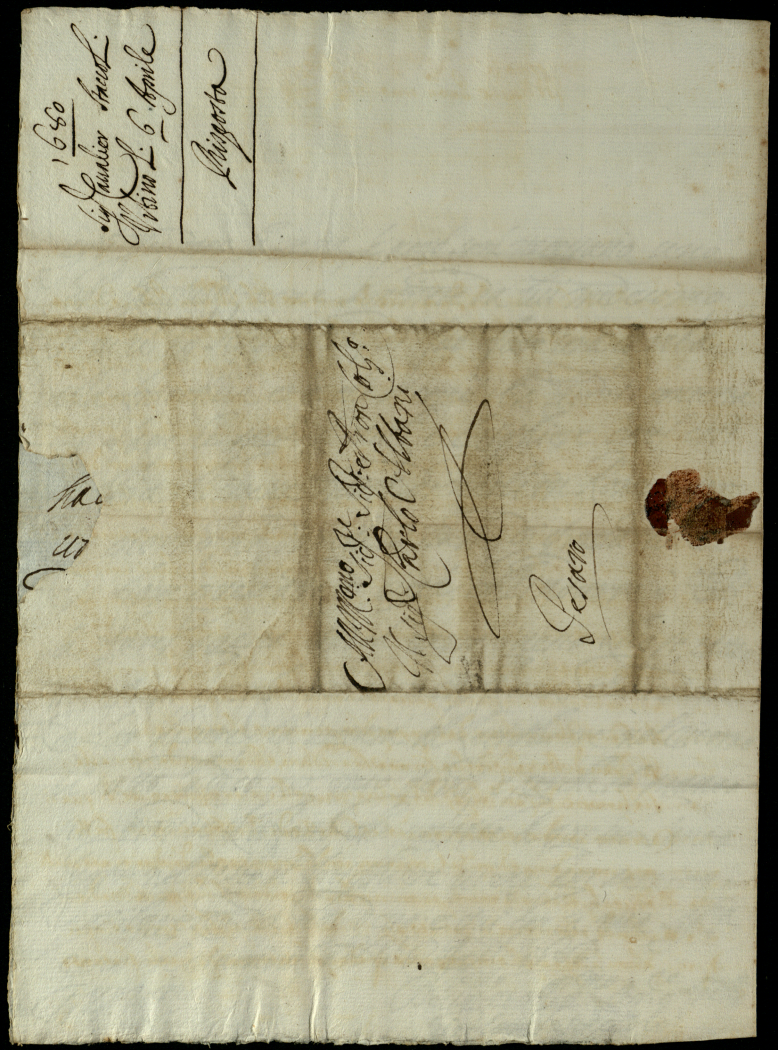 1680
Sig Cavalier Staccoli
Urbino Li 6 Aprile
Risposta
All'Ill.mo Sig.r Sig.r Pron Col.mo
Il Sig.r Carlo Albani
Pesaro